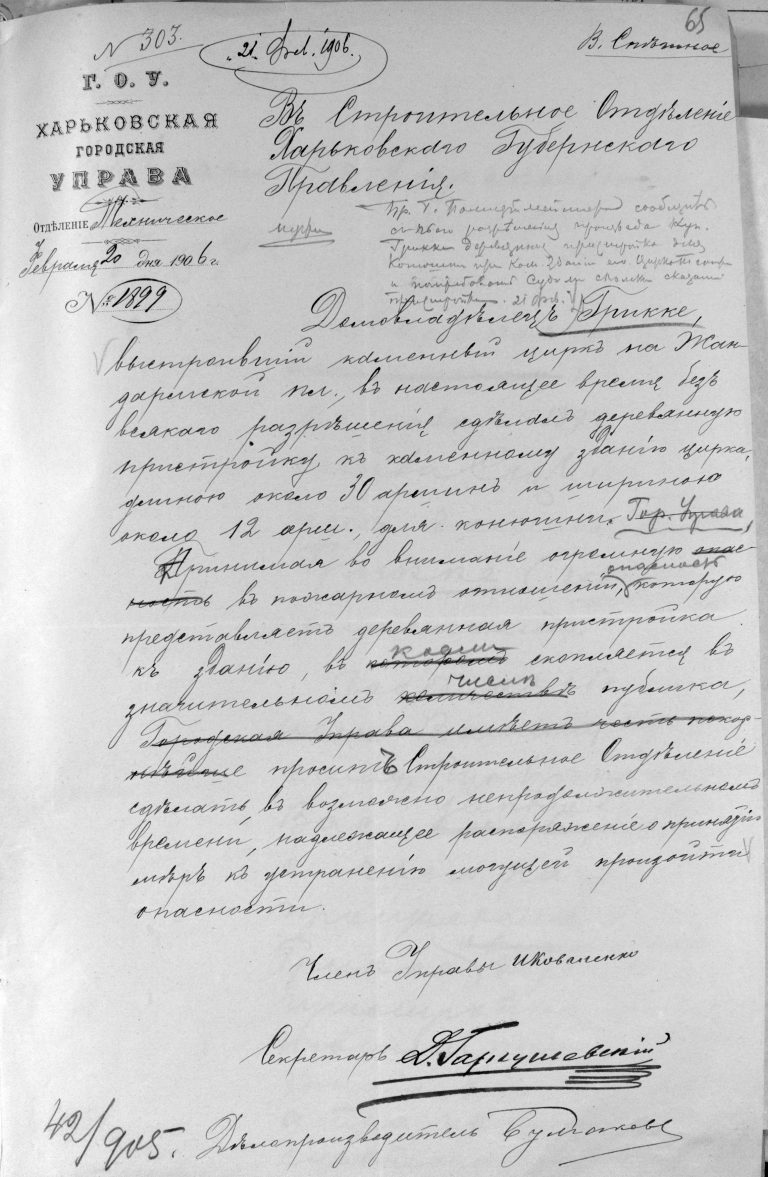 65
N 303.
"21" Фел. 1906.
В. Спѣшное
Г. О. У.
ХАРЬКОВСКАЯ
ГОРОДСКАЯ
УПРАВА
Отдѣленіе Техническое
Февраля 20 дня 1906 г.
№ 1899
Въ Строительное Отдѣленіе
Харьковскаго Губернскаго
Правленія.
Пр. Г. Полицеймейстера сообщить
съ чьего разрѣшенія
Грикке деревянная пристройка для
конюшни при кам. зданіи его цирка
21 фев.
Домовладѣлецъ Грикке,
выстроившій каменный цирк на Жан-
дармской пл., въ настоящее время безъ
всякаго разрѣшенія сдѣлалъ деревянную
пристройку къ каменному зданію цирка,
длиною около 30 аршинъ и шириною
около 12 арш., для конюшни. Гор. Управа,
Принимая во вниманіе огромную опас-
ность въ пожарномъ отношеніи, опасность которую
представляетъ деревянная пристройка
къ зданію, въ которомъ коемъ скопляется въ
значительномъ количествѣ числѣ публика,
Городская Управа имѣетъ честь покор-
нѣйше проситъ Строительное Отдѣленіе
сдѣлать, въ возможно непродолжительномъ
времени, надлежащее распоряженіе о принятіи
мѣръ къ устраненію могущей произойти
опасности.
Членъ Управы И Коваленко
Секретарь
42/905.
Дѣлопроизводитель